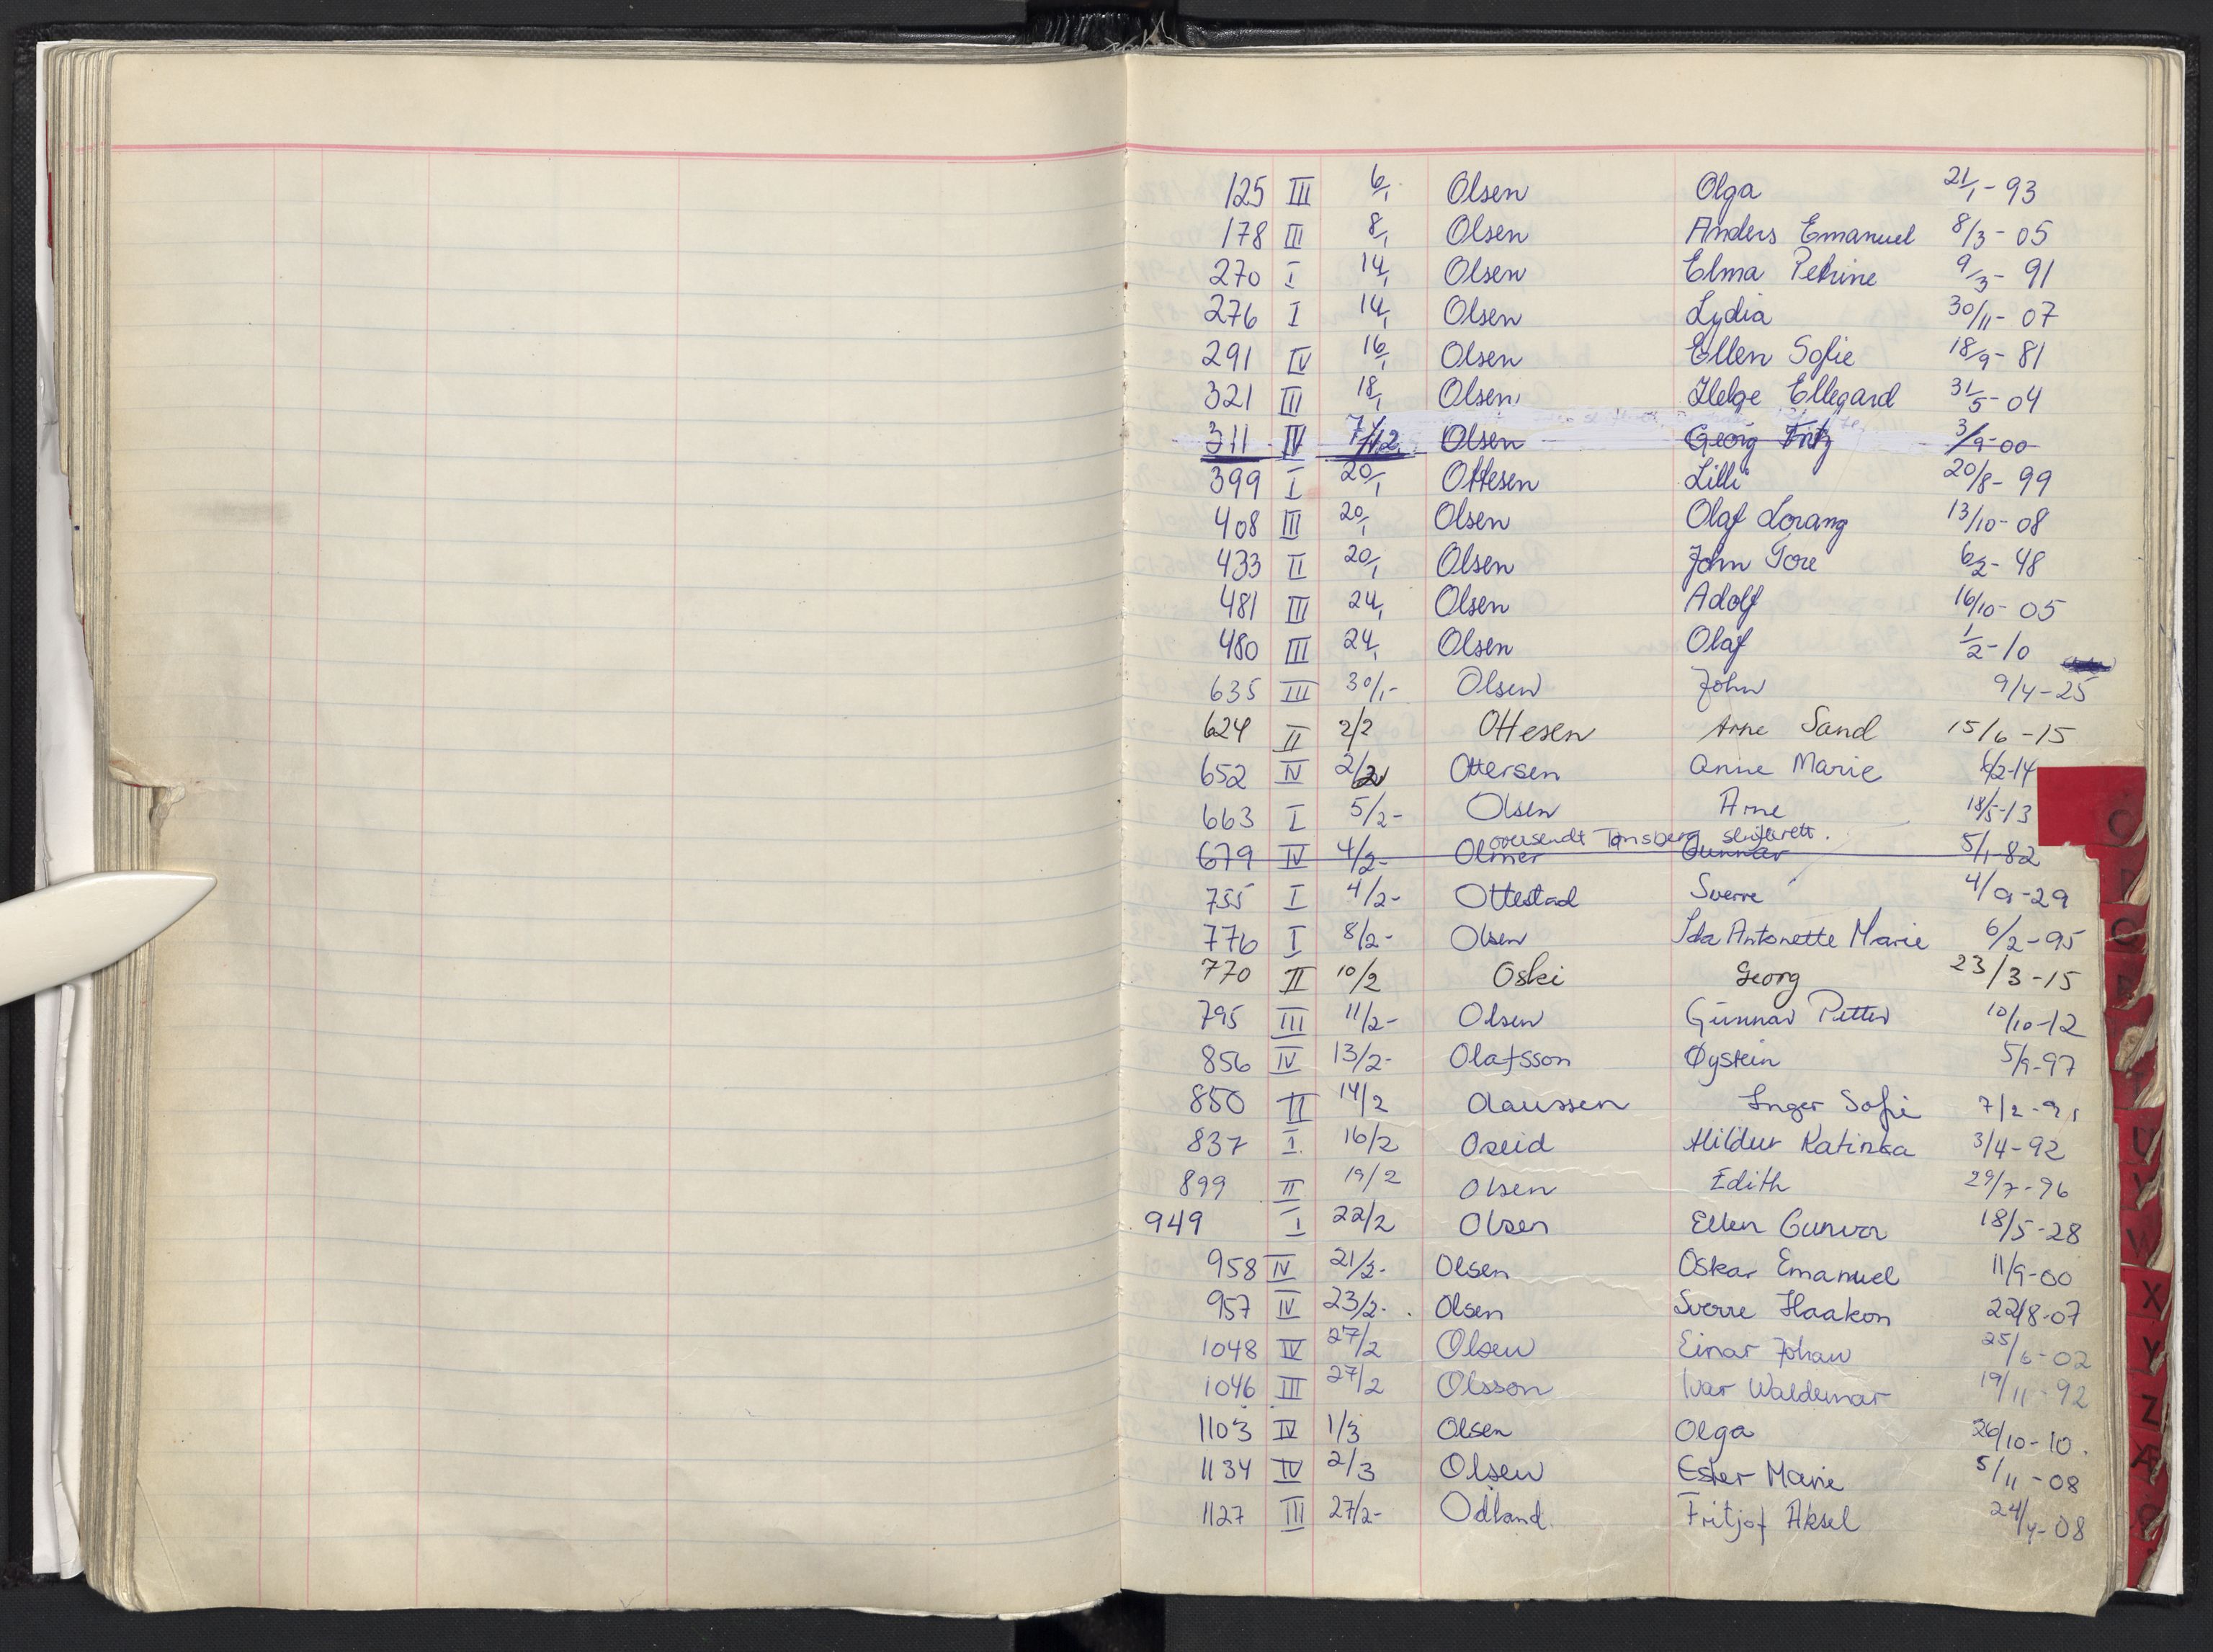 125 III 6/1 Olsen Olga 21/1-93
178 III 8/1 Olsen Anders Emanuel 8/3-05
270 I 14/1 Olsen Elma Petrine 9/3-91
276 I 14/1 Olsen Lydia 30/11-07
291 IV 16/1 Olsen Ellen Sofie 18/9-81
321 III 18/1 Olsen Helge Ellegard 31/5-04
311 IV 7/12 Olsen Georg Fritz 3/9-00
399 I 20/1 Ottesen Lilli 20/8-99
408 III 20/1 Olsen Olaf Lorang 13/10-08
433 II 20/1 Olsen John Tore 6/2-48
481 III 24/1 Olsen Adolf 16/10-05
480 III 24/1 Olsen Olaf 1/2-10
635 III 30/1- Olsen John 9/4-25
624 II 2/2 Ottesen Arne Sand 15/6-15
652 IV 2/2 Ottersen Anne Marie 6/2-14
663 I 5/2- Olsen Arne 18/5-13
oversendt Tønsberg skifterett.
679 IV 4/2- Olmer Gunnar 5/1-82
755 I 4/2- Ottestad Sverre 4/9-29
776 I 8/2- Olsen Ida Antonette Marie 6/2-95
770 II 10/2 Oski Georg 23/3-15
795 III 11/2- Olsen Gunnar Petter 10/10-12
856 IV 13/2- Olafsson Øystein 5/9-97
850 II 14/2 Olaussen Inger Sofie 7/2-91
837 I 16/2 Oseid Hildur Katinka 3/4-92
899 II 19/2 Olsen Edith 29/7-96
949 I 22/2 Olsen Ellen Gunvor 18/5-28
958 IV 21/2- Olsen Oskar Emanuel 11/9-00
957 IV 23/2- Olsen Sverre Haakon 22/8-07
1048 IV 27/2 Olsen Einar Johan 25/6-02
1046 III 27/2 Olsson Ivar Waldemar 19/11-92
1103 IV 1/3 Olsen Olga 26/10-10.
1134 IV 2/3 Olsen Ester Marie 5/11-08
1127 III 27/2- Odland Fritjof Aksel 24/4-08
O
X
Y
Z
Æ